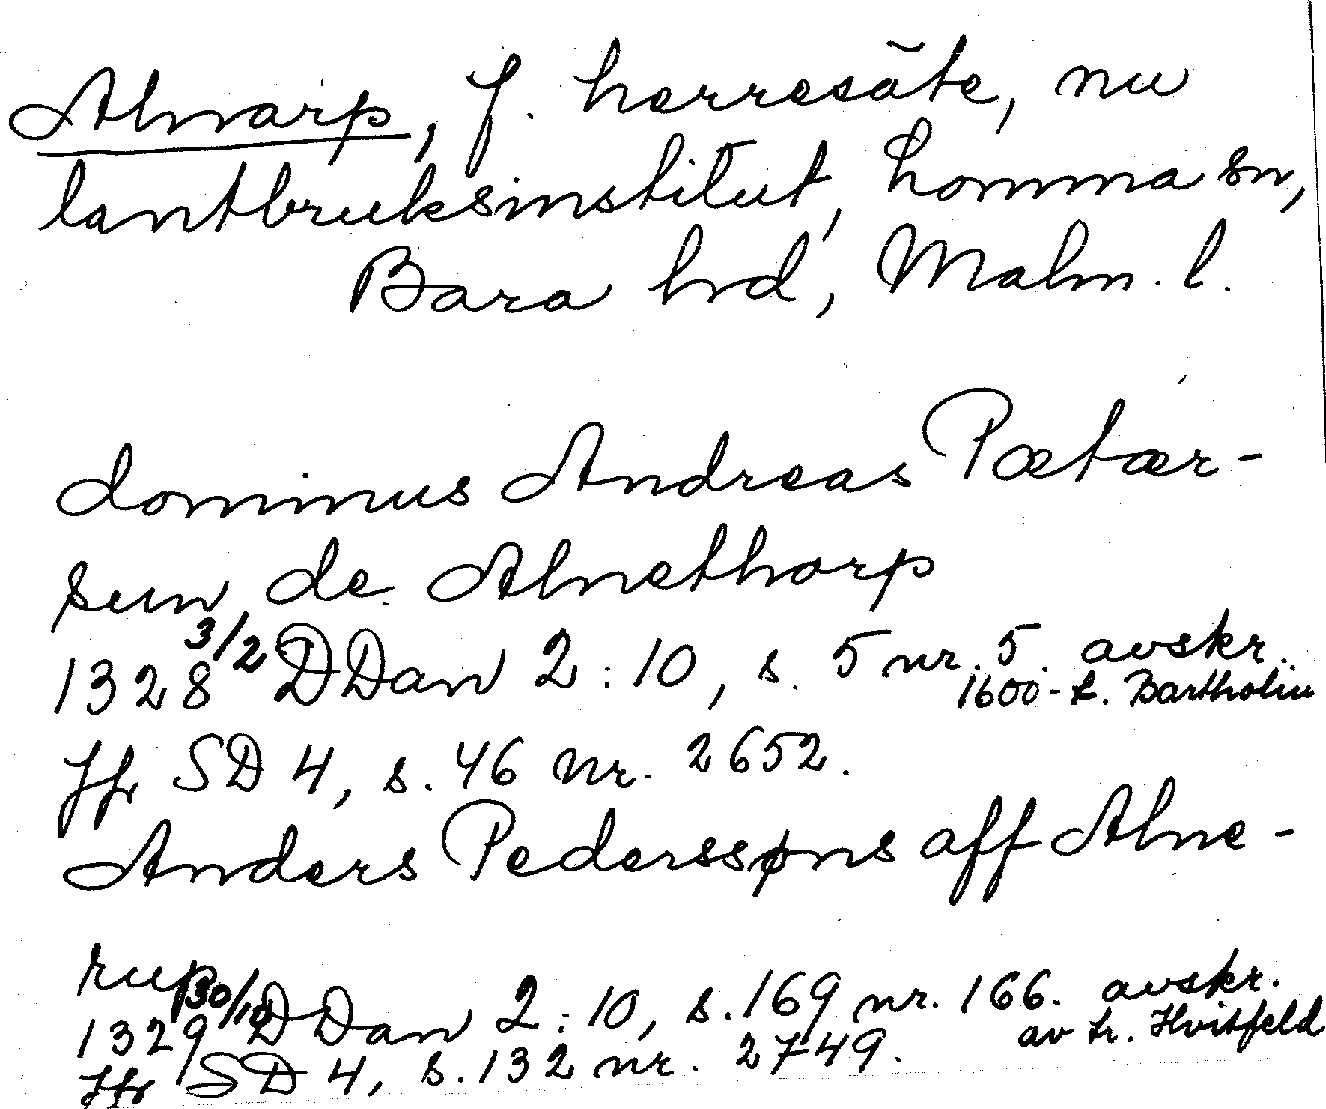 Alnarp, f. herresäte, nu
lantbruksinstitut, Lomma sn,
Bara hrd, Malm. l.
dominus Andreas Pætær-
sun de Alnethorp
1328 3/2 DDan 2:10, s. 5 nr. 5. avskr.
1600-t. Bartholin
Jfr SD 4, s. 46 nr. 2652.
Anders Pederssøns aff Alne-
rup
1329 30/10 DDan 2:10, s. 169 nr. 166. avskr.
av tr. Hvitfeld
Jfr SD 4, s. 132 nr. 2749.